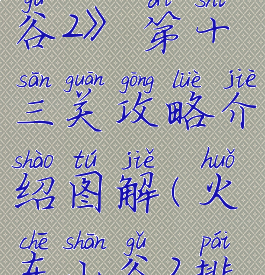 gǔ dì shí
谷2》第十
sān guān gōng lüè jiè
三关攻略介
shào tú jiě huǒ
绍图解(火
chē shān gǔ pái
车山谷2排